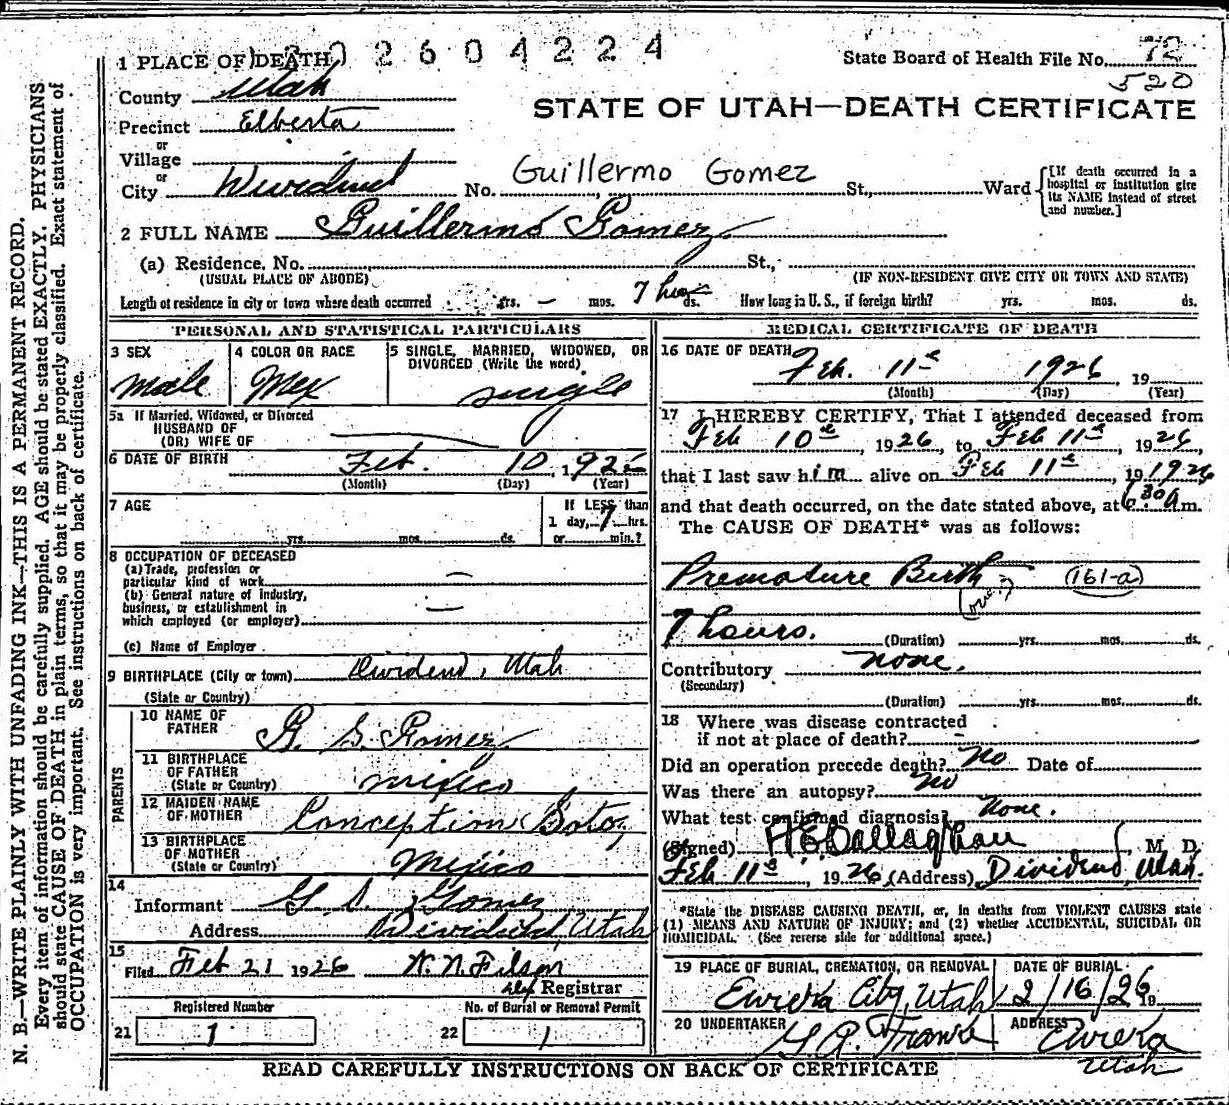 1 PLACE OF DEATH
2 6 0 4 2 2 4
State Board of Health File No. 72
520
County Utah
STATE OF UTAH—DEATH CERTIFICATE
Precinct Elberta
or
Village
or
City Dividend No. Guillermo Gomez St., Ward
[If death occurred in a
hospital or institution give
its NAME instead of street
and number.]
2 FULL NAME Guillermo Gomez
(a) Residence. No. St.,
(USUAL PLACE OF ABODE) (IF NON-RESIDENT GIVE CITY OR TOWN AND STATE)
Length of residence in city or town where death occurred yrs. — mos. 7 hrs ds. How long in U. S., if foreign birth? yrs. mos. ds.
PERSONAL AND STATISTICAL PARTICULARS
3 SEX
Male
4 COLOR OR RACE
Mex
5 SINGLE, MARRIED, WIDOWED, OR
DIVORCED (Write the word)
single
5a If Married, Widowed, or Divorced
HUSBAND OF
(OR) WIFE OF
6 DATE OF BIRTH Feb. 10, 1926
(Month) (Day) (Year)
7 AGE
yrs. mos. ds.
If LESS than
1 day, 7 hrs.
or min.?
8 OCCUPATION OF DECEASED
(a) Trade, profession or
particular kind of work —
(b) General nature of industry,
business, or establishment in
which employed (or employer) —
(c) Name of Employer
9 BIRTHPLACE (City or town) Dividend, Utah
(State or Country)
PARENTS
10 NAME OF
FATHER G. S. Gomez
11 BIRTHPLACE
OF FATHER
(State or Country) Mexico
12 MAIDEN NAME
OF MOTHER Conception Sotoz
13 BIRTHPLACE
OF MOTHER
(State or Country) Mexico
14
Informant G. S. Gomez
Address Dividend, Utah
15
Filed Feb 21 1926 N. N. Filson
Registrar
Registered Number
21 1
No. of Burial or Removal Permit
22 1
MEDICAL CERTIFICATE OF DEATH
16 DATE OF DEATH
Feb. 11th 1926 19
(Month) (Day) (Year)
17 I HEREBY CERTIFY, That I attended deceased from
Feb 10th, 1926, to Feb 11th, 1926,
that I last saw him alive on Feb 11th, 19 1926
and that death occurred, on the date stated above, at 6:30 A m.
The CAUSE OF DEATH* was as follows:
Premature Birth (161-a)
7 hours. (Duration) yrs. mos. ds.
Contributory none.
(Secondary)
(Duration) yrs. mos. ds.
18 Where was disease contracted
if not at place of death? —
Did an operation precede death? No Date of
Was there an autopsy? No
What test confirmed diagnosis? None.
(Signed) H E Dallaghan, M. D.
Feb 11th, 1926 (Address) Dividend, Utah.
*State the DISEASE CAUSING DEATH, or, in deaths from VIOLENT CAUSES state
(1) MEANS AND NATURE OF INJURY; and (2) whether ACCIDENTAL, SUICIDAL OR
HOMICIDAL. (See reverse side for additional space.)
19 PLACE OF BURIAL, CREMATION, OR REMOVAL
Eureka City, Utah
DATE OF BURIAL
2/16/26 19
20 UNDERTAKER
G. A. Franke
ADDRESS
Eureka
Utah
READ CAREFULLY INSTRUCTIONS ON BACK OF CERTIFICATE
N. B.—WRITE PLAINLY WITH UNFADING INK—THIS IS A PERMANENT RECORD.
Every item of information should be carefully supplied. AGE should be stated EXACTLY. PHYSICIANS
should state CAUSE OF DEATH in plain terms, so that it may be properly classified. Exact statement of
OCCUPATION is very important. See instructions on back of certificate.